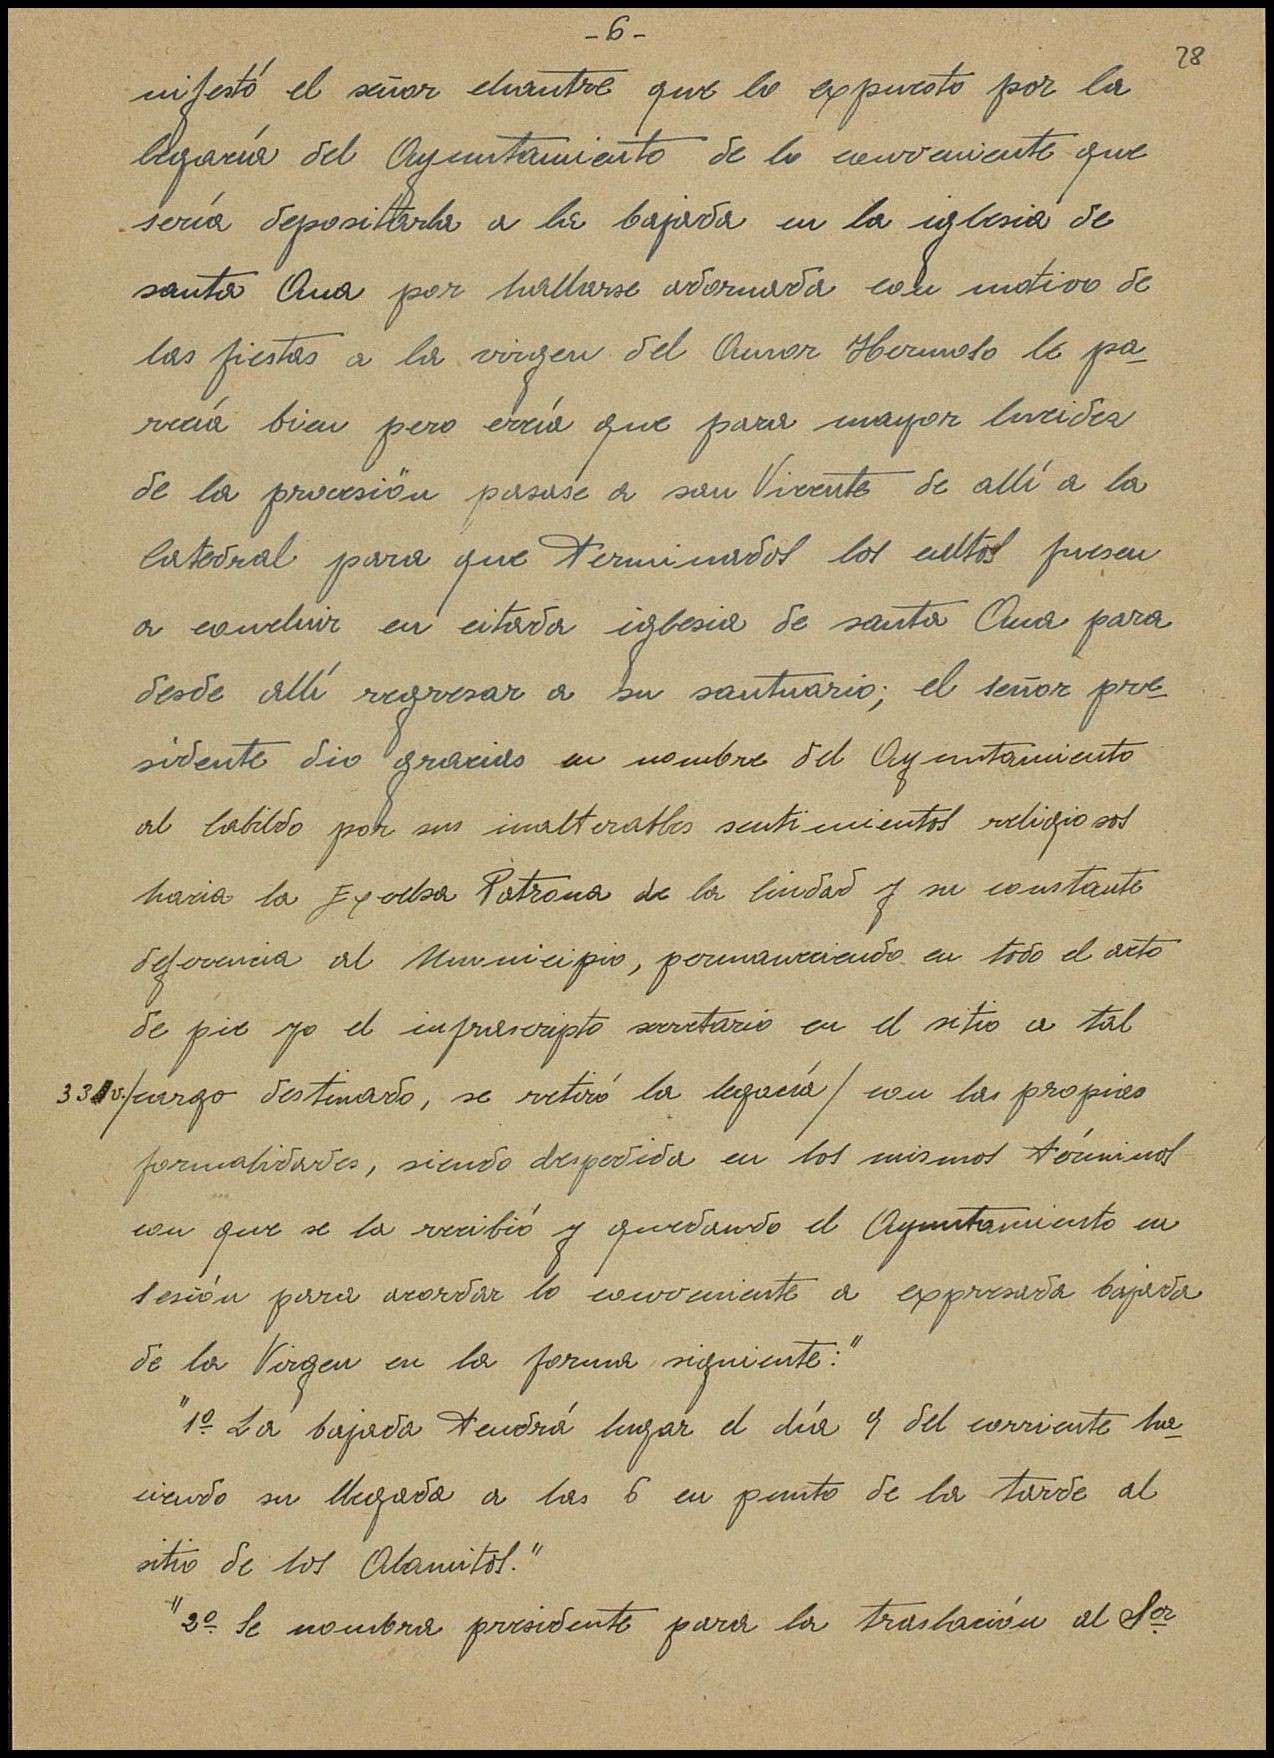 -6-
28
nifestó el señor chantre que lo expuesto por la
legacía del Ayuntamiento de lo conveniente que
sería depositarla a la bajada en la iglesia de
santa Ana por hallarse adornada con motivo de
las fiestas a la virgen del Amor Hermoso le pa-
recía bien pero creía que para mayor lucidez
de la procesión pasase a san Vicente de allí a la
Catedral para que terminados los cultos fuesen
a concluir en citada iglesia de santa Ana para
desde allí regresar a su santuario; el señor pre-
sidente dio gracias en nombre del Ayuntamiento
al Cabildo por sus inalterables sentimientos religiosos
hacia la Excelsa Patrona de la Ciudad y su constante
deferencia al Municipio, permaneciendo en todo el acto
de pie yo el infrascripto secretario en el sitio a tal
33 v./cargo destinado, se retiró la legacía/ con las propias
formalidades, siendo despedida en los mismos términos
con que se la recibió y quedando el Ayuntamiento en
sesión para acordar lo conveniente a expresada bajada
de la Virgen en la forma siguiente:"
"1º La bajada tendrá lugar el día 9 del corriente ha-
ciendo su llegada a las 6 en punto de la tarde al
sitio de los Alamitos."
"2º Se nombra presidente para la traslación al Sor